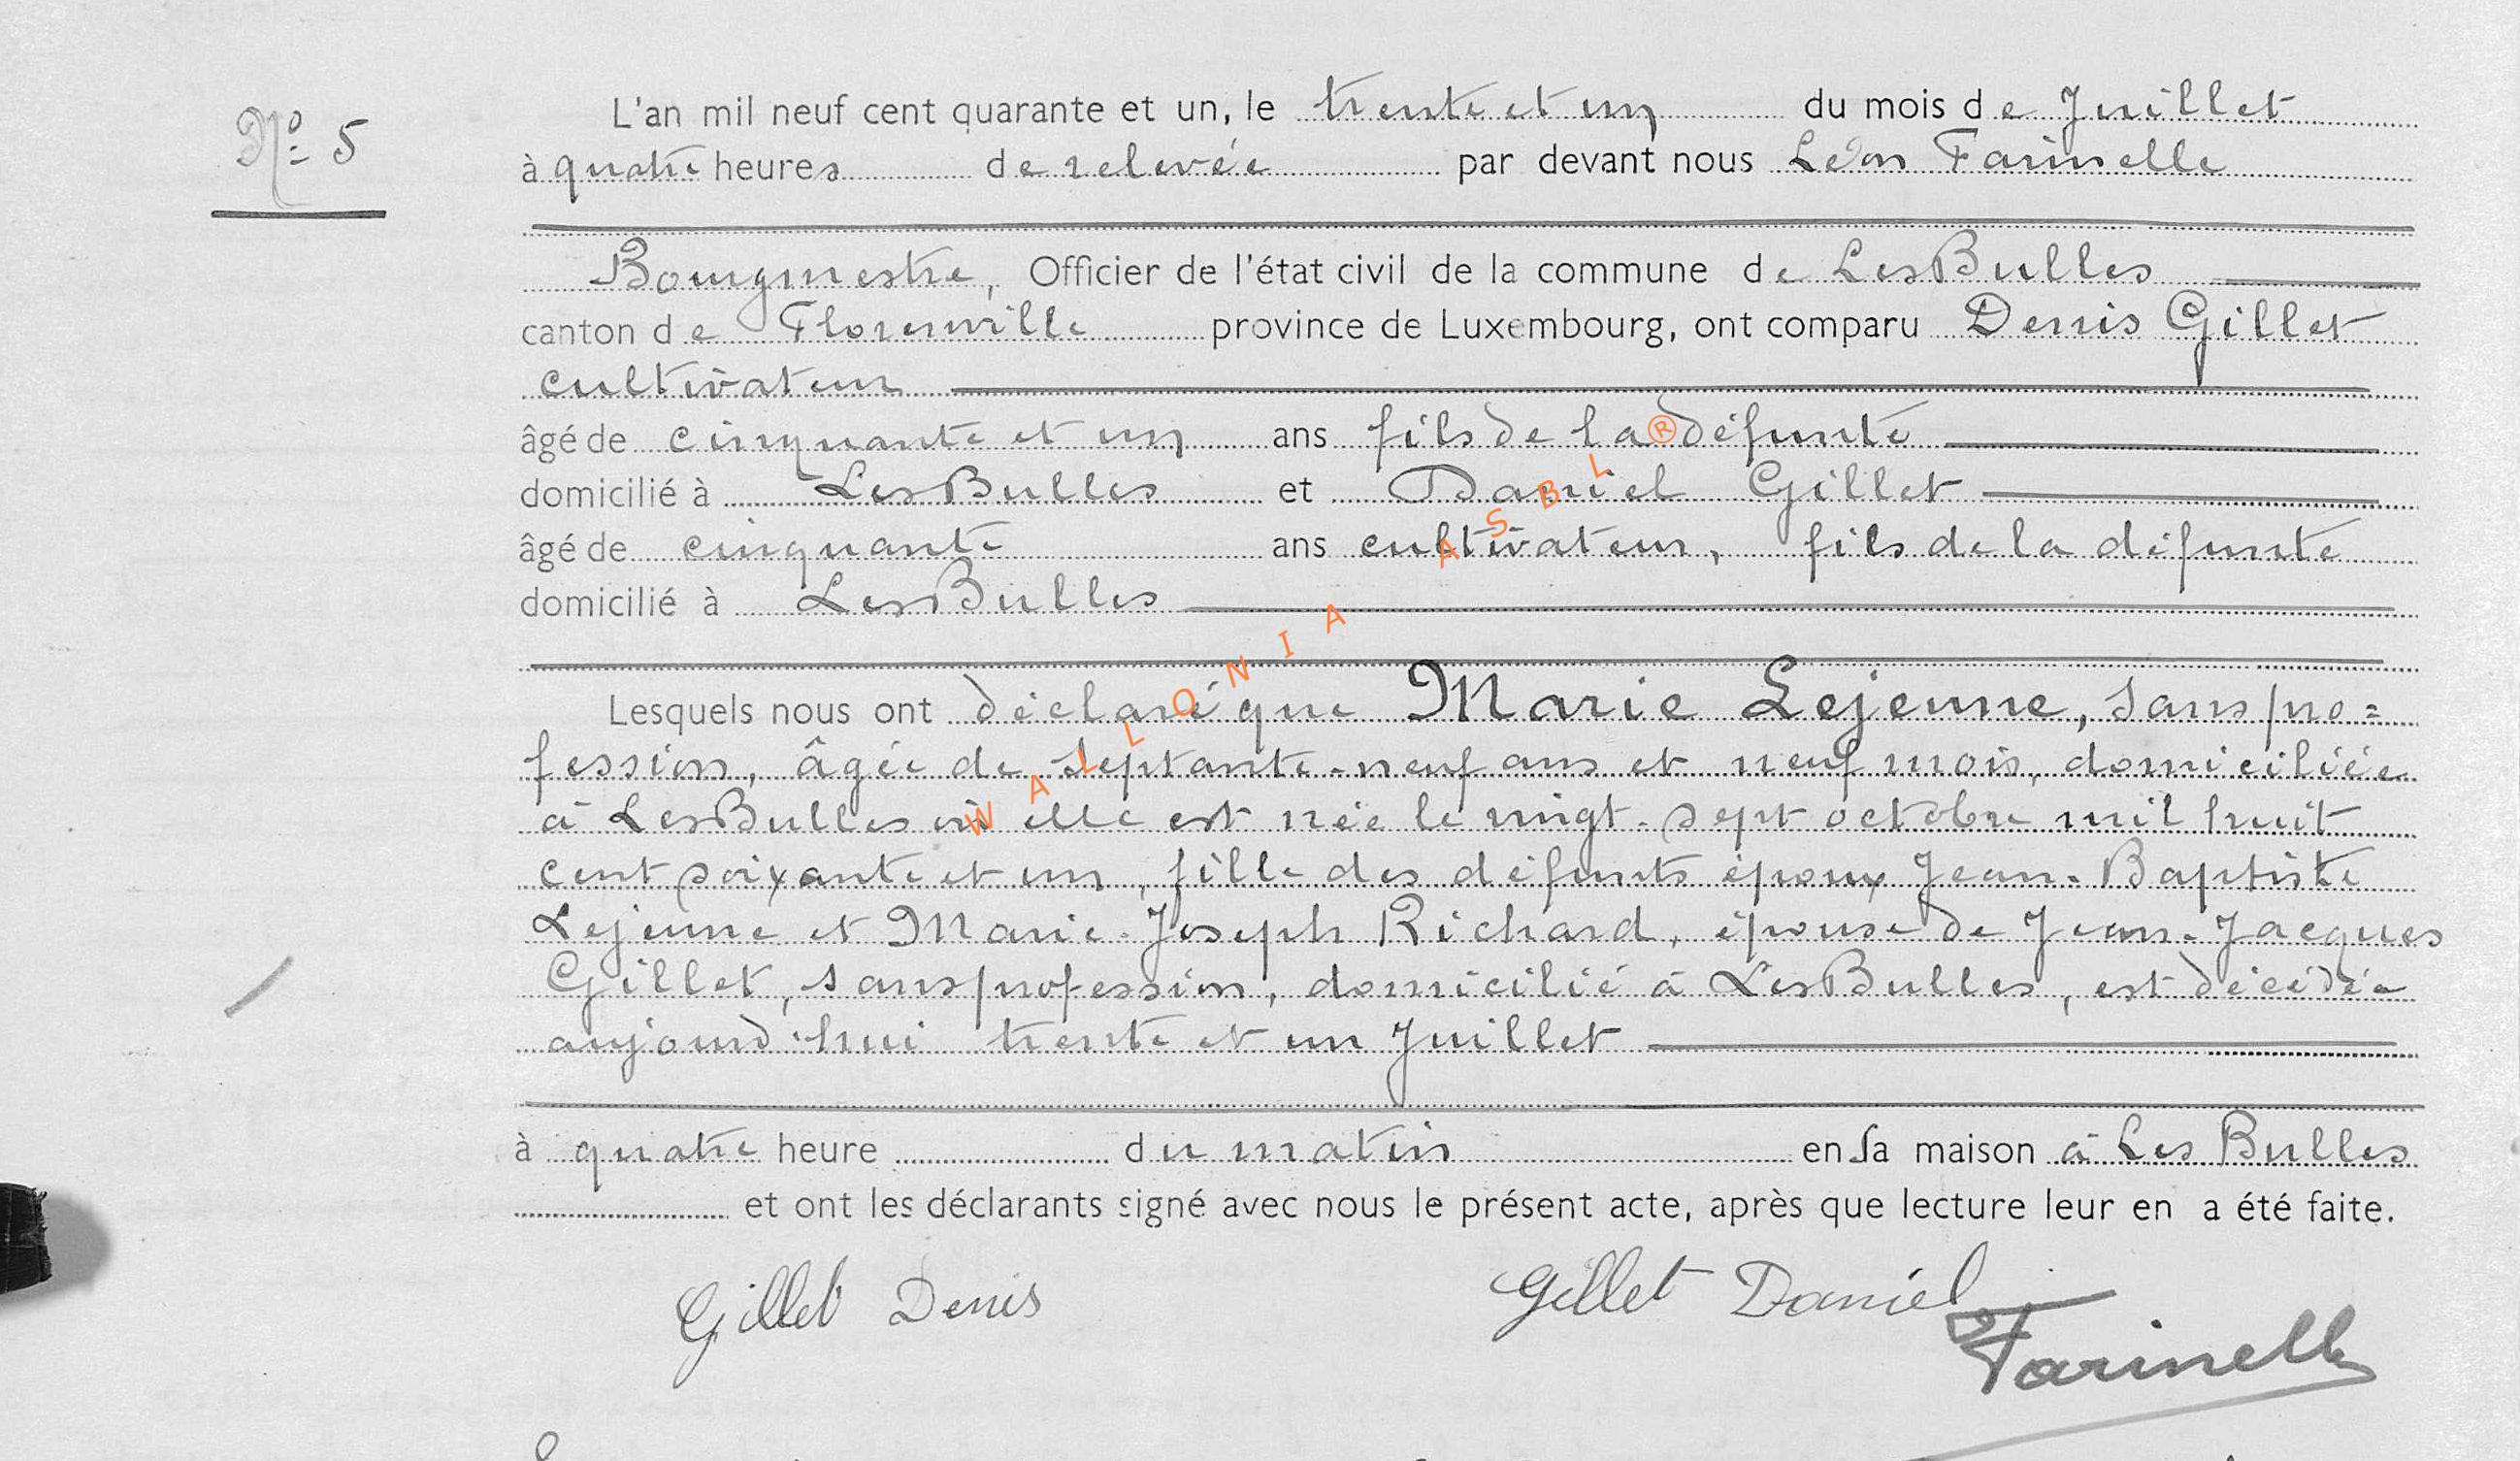 Nº 5
L'an mil neuf cent quarante et un, le trente et un du mois de Juillet
à quatre heures de relevée par devant nous Léon Farinelle
Bourgmestre, Officier de l'état civil de la commune de LesBulles
canton de Florenville province de Luxembourg, ont comparu Denis Gillet
cultivateur
âgé de cinquante et un ans fils de la défunte
domicilié à LesBulles et Daniel Gillet
âgé de cinquante ans cultivateur, fils de la défunte
domicilié à LesBulles
Lesquels nous ont déclaré que Marie Lejeune, sans pro=
fession, âgée de septante-neuf ans et neuf mois, domiciliée
à LesBulles où elle est née le vingt-sept octobre mil huit
cent soixante et un, fille des défunts époux Jean-Baptiste
Lejeune et Marie-Joseph Richard, épouse de Jean-Jacques
Gillet, sans profession, domicilié à LesBulles, est décédée
aujourd'hui trente et un Juillet
à quatre heure du matin en sa maison à Les Bulles
et ont les déclarants signé avec nous le présent acte, après que lecture leur en a été faite.
Gillet Denis Gillet Daniel
Farinelle
WALLONIA ASBL ®